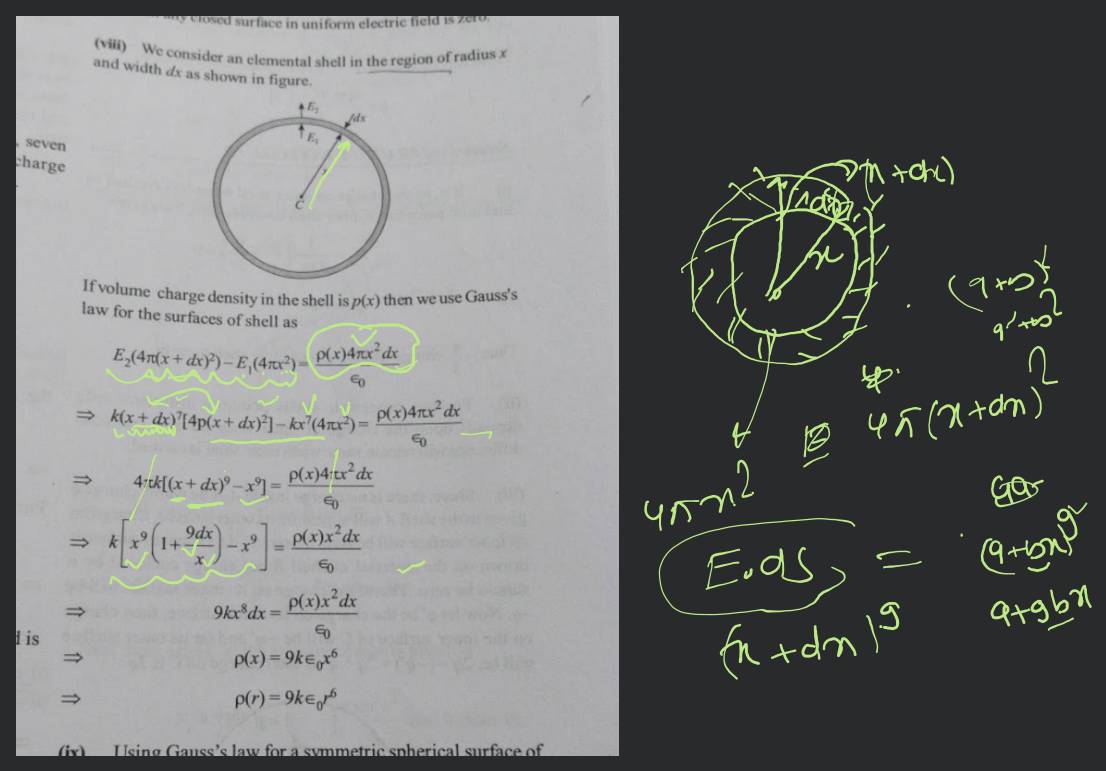 any closed surface in uniform electric field is zero.
(viii) We consider an elemental shell in the region of radius x
and width dx as shown in figure.
E₂
dx
E₁
x
C
, seven
charge
If volume charge density in the shell is p(x) then we use Gauss's
law for the surfaces of shell as
E₂(4π(x + dx)²) – E₁(4πx²) = ρ(x)4πx² dx / ∈₀
⇒ k(x + dx)⁷[4p(x + dx)²] – kx⁷(4πx²) = ρ(x)4πx² dx / ∈₀
⇒ 4πk[(x + dx)⁹ – x⁹] = ρ(x)4πx² dx / ∈₀
⇒ k[x⁹(1 + 9dx / x) – x⁹] = ρ(x)x² dx / ∈₀
⇒ 9kx⁸dx = ρ(x)x² dx / ∈₀
d is
⇒ ρ(x) = 9k∈₀x⁶
⇒ ρ(r) = 9k∈₀r⁶
(ix) Using Gauss's law for a symmetric spherical surface of
(x + dx)
x
4π(x + dx)²
4πx²
E.ds =
(x + dx)⁹
(a+bx)⁹
a+9bx